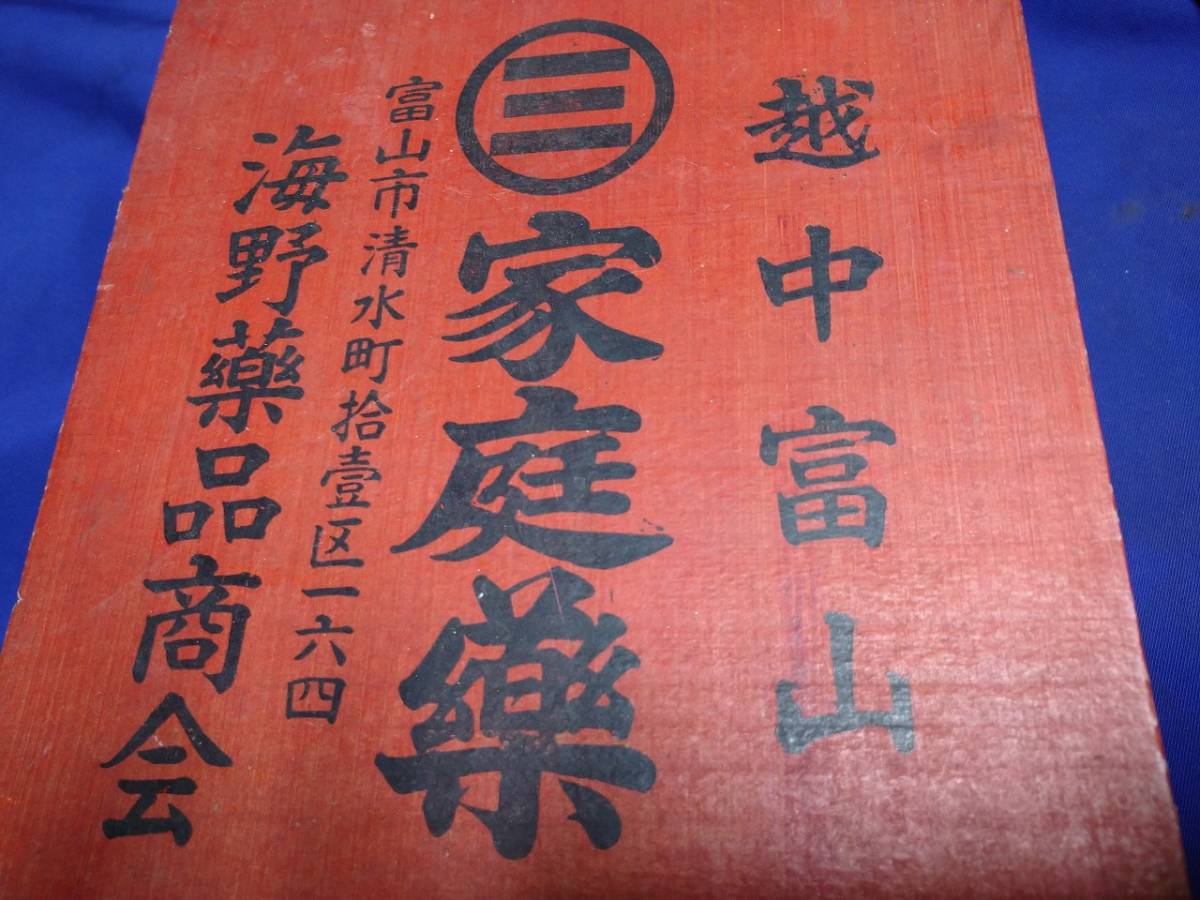 越中富山
㊂家庭藥
富山市清水町拾壹区一六四
海野藥品商会